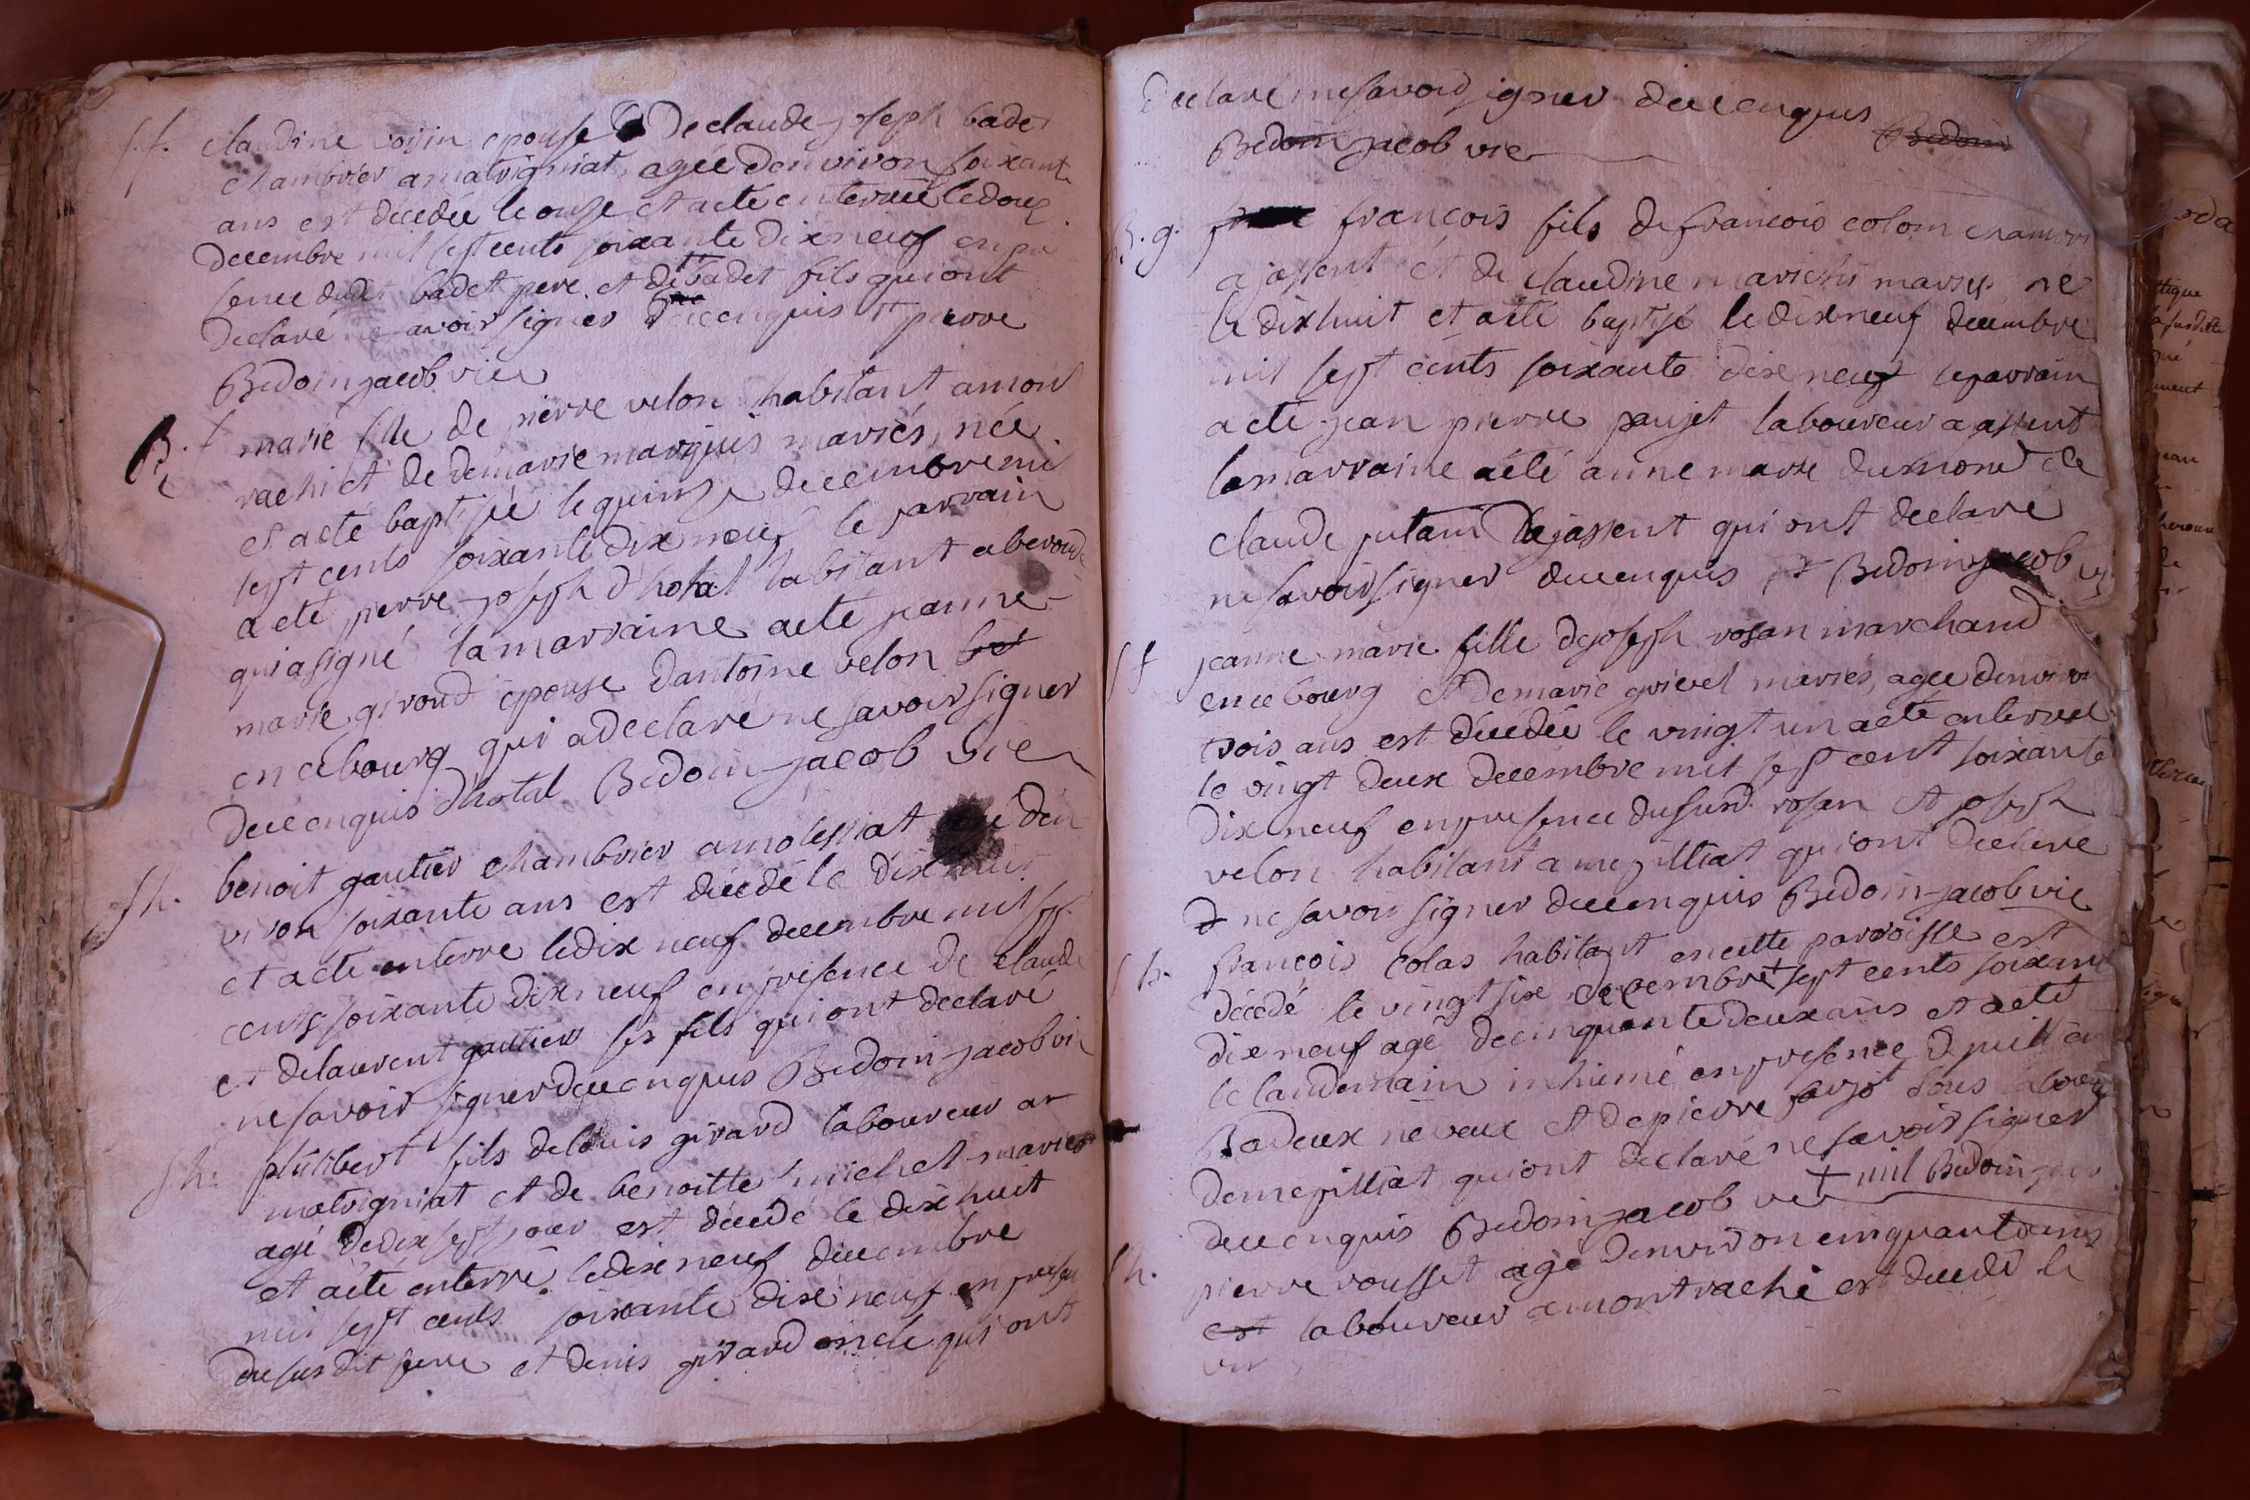 s.f. claudine voisin epouse De claude joseph badet
chambrier a matrigniat, agée denviron soixante
ans est décedée le onze et a eté enterrée le douze
decembre mil sept cents soixante dix neuf en pre
sence dudt badet pere et dt badet fils qui ont
declaré ne avoir signer de ce enquis et pierre
Bedoin jacob vic
B. f marie fille de pierre velon habitant a mont
rachi et de demarie marquis mariés, née
et a eté baptisée le quinze decembre mil
sept cents soixante dix neuf le parrain
a eté pierre joseph d'hotal habitant a
qui a signé la marraine a eté jeanne
marie giroud epouse dantoine velon
en ce bourg qui a declaré ne savoir signer
de ce enquis dhotal Bedoin jacob vic
s h. benoit gautier chambrier a molessiat agé den
viron soixante ans est décedé le dix huit
et a eté enterré le dix neuf decembre mil sept
cents soixante dix neuf en presence de claude
et de laurent gautier ses fils qui ont declaré
ne savoir signer de ce enquis Bedoin jacob vi
s h. philibert fils de louis girard laboureur a
matrigniat et de benoitte michel mariés
agé de dix sept jour est décedé le dix huit
et a eté enterré le dix neuf decembre
mil sept cents soixante dix neuf en presen
du susdit pere et denis girard oncle qui ont
declaré ne savoir signer de ce enquis
Bedoin jacob vic Bedoin
B. g. francois fils de francois colom chambri
a jassent et de claudine marichi mariés né
le dix huit et a eté baptisé le dix neuf decembre
mil sept cents soixante dix neuf le parrain
a eté jean pierre paujet laboureur a jassent
la marraine a eté anne marie dumond de
claude putani de jassent qui ont declaré
ne savoir signer de ce enquis Bedoin jacob vic
s f jeanne marie fille de joseph rosan marchand
en ce bourg et de marie grivel mariés, agée denviron
trois ans est décedée le vingt un a eté enterrée
le vingt deux decembre mil sept cent soixante
dix neuf en presence du surd. rosan et joseph
velon habitant a mepilliat qui ont declaré
ne savoir signer de ce enquis Bedoin jacob vic
s h. françois colas habitant en cette parroisse est
décédé le vingt six decembre + sept cents soixante
dix neuf agé de cinquante deux ans et a eté
le landemain inhumé en presence de
Badeux neveux et de pierre
de mepilliat qui ont declaré ne savoir signer
de ce enquis Bedoin jacob vic + mil Bedoin jacob
s h. pierre rousset agé denviron cinquante ans
est laboureur a montrachi est décédé le